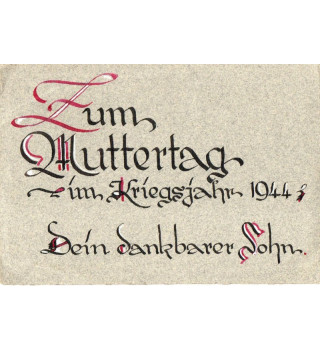 Zum
Muttertag
~ im Kriegsjahr 1944
Dein dankbarer Sohn.